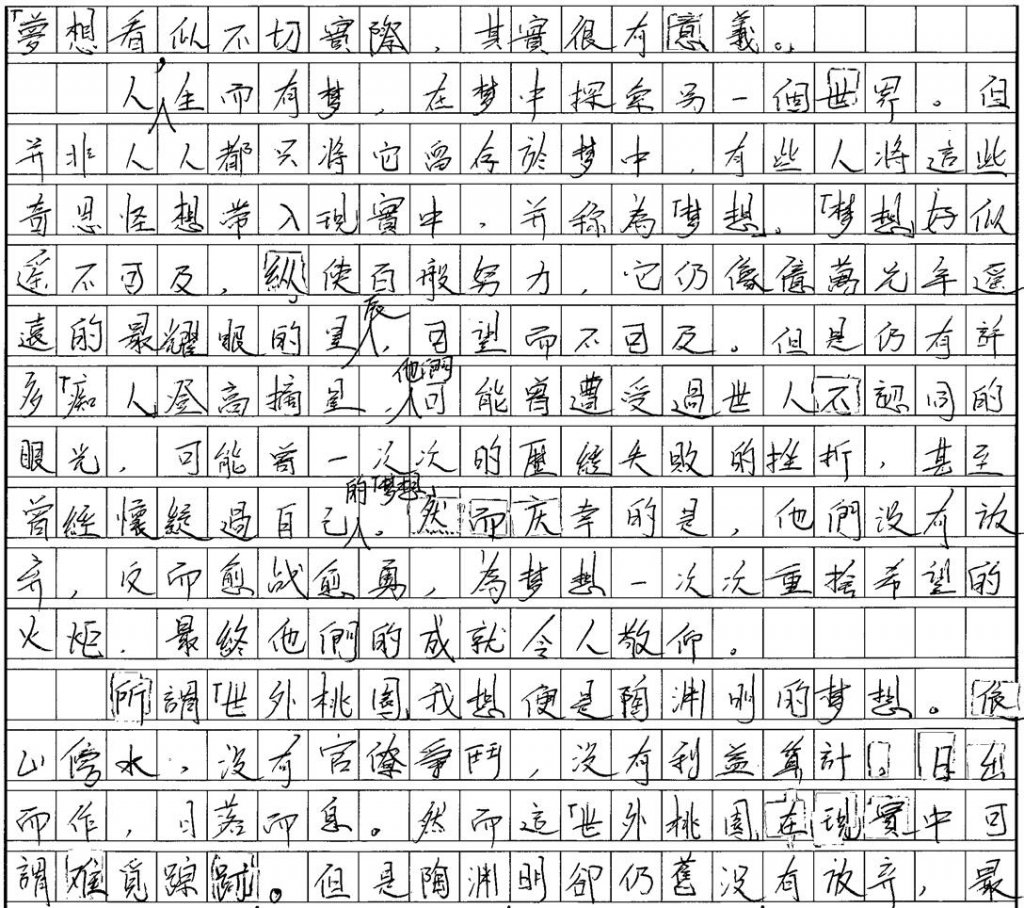 「夢想看似不切實際，其實很有意義。」
人，生而有梦，在梦中探索另一個世界。但
并非人人都只將它留存於梦中，有些人將這些
奇思怪想带入現實中，并称為「梦想」。「梦想」好似
遥不可及，縱使百般努力，它仍像億萬光年遥
遠的最耀眼的星辰，可望而不可及。但是仍有許
多「痴人」登高摘星，他們可能曾遭受過世人不認同的
眼光，可能曾一次次的歷經失敗的挫折，甚至
曾經懷疑過自己的「夢想」。然而庆幸的是，他們没有放
弃，反而愈战愈勇，為梦想一次次重拾希望的
火炬，最終他們的成就令人敬仰。
所謂「世外桃園」我想便是陶渊明的梦想。依
山傍水，没有官僚爭鬥，没有利益算計。日出
而作，日落而息。然而這「世外桃園」在現實中可
謂难覓踪跡。但是陶渊明卻仍舊没有放弃，最